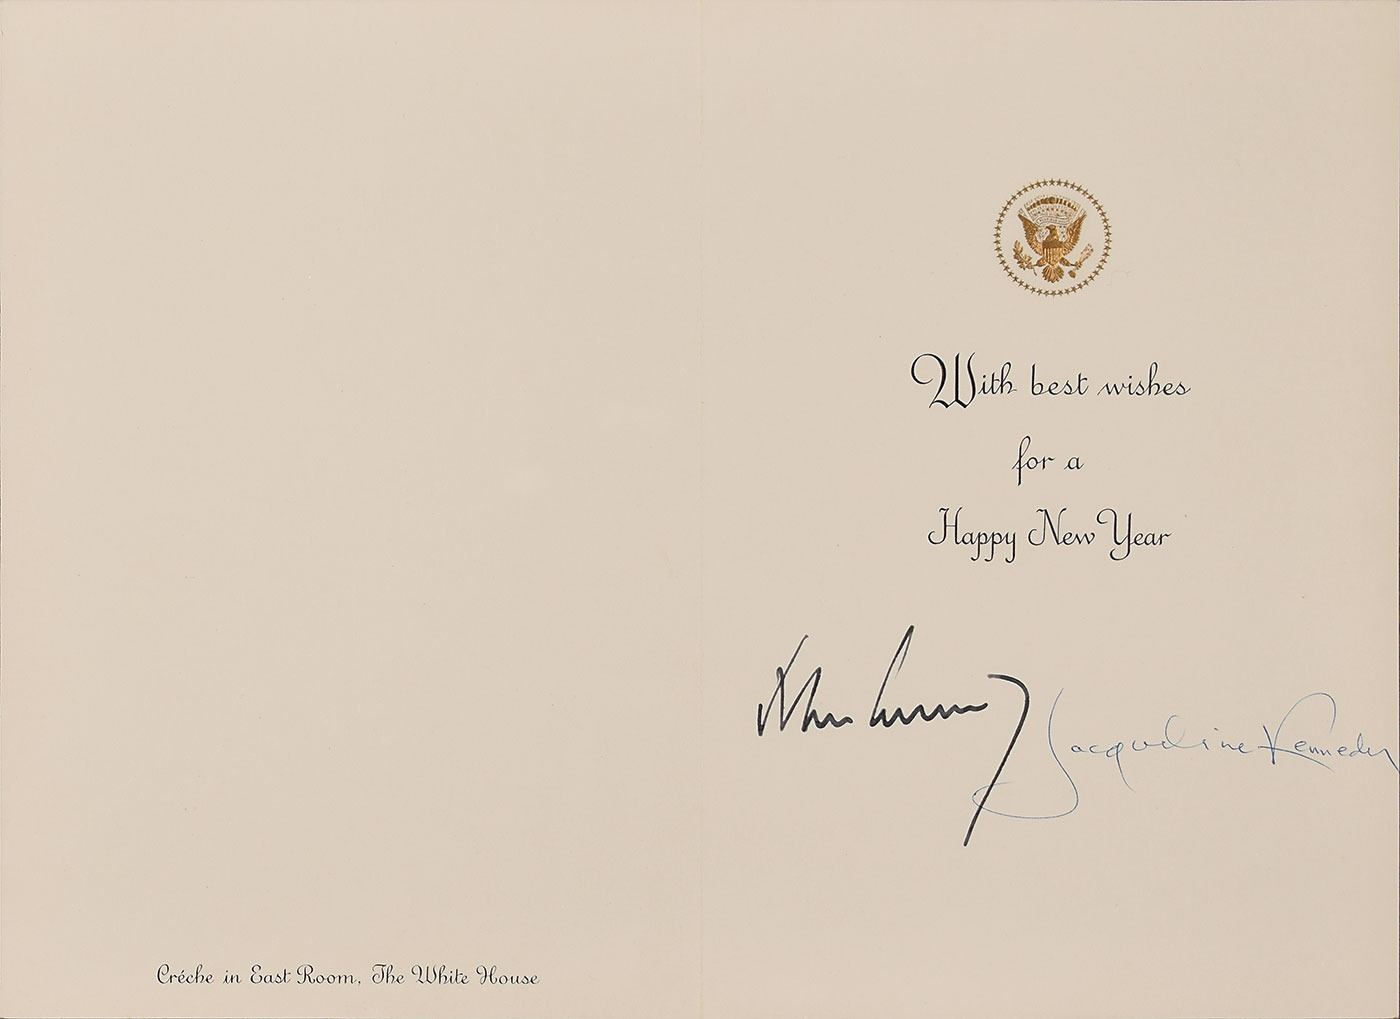 With best wishes
for a
Happy New Year
John Kennedy
Jacqueline Kennedy
Créche in East Room, The White House